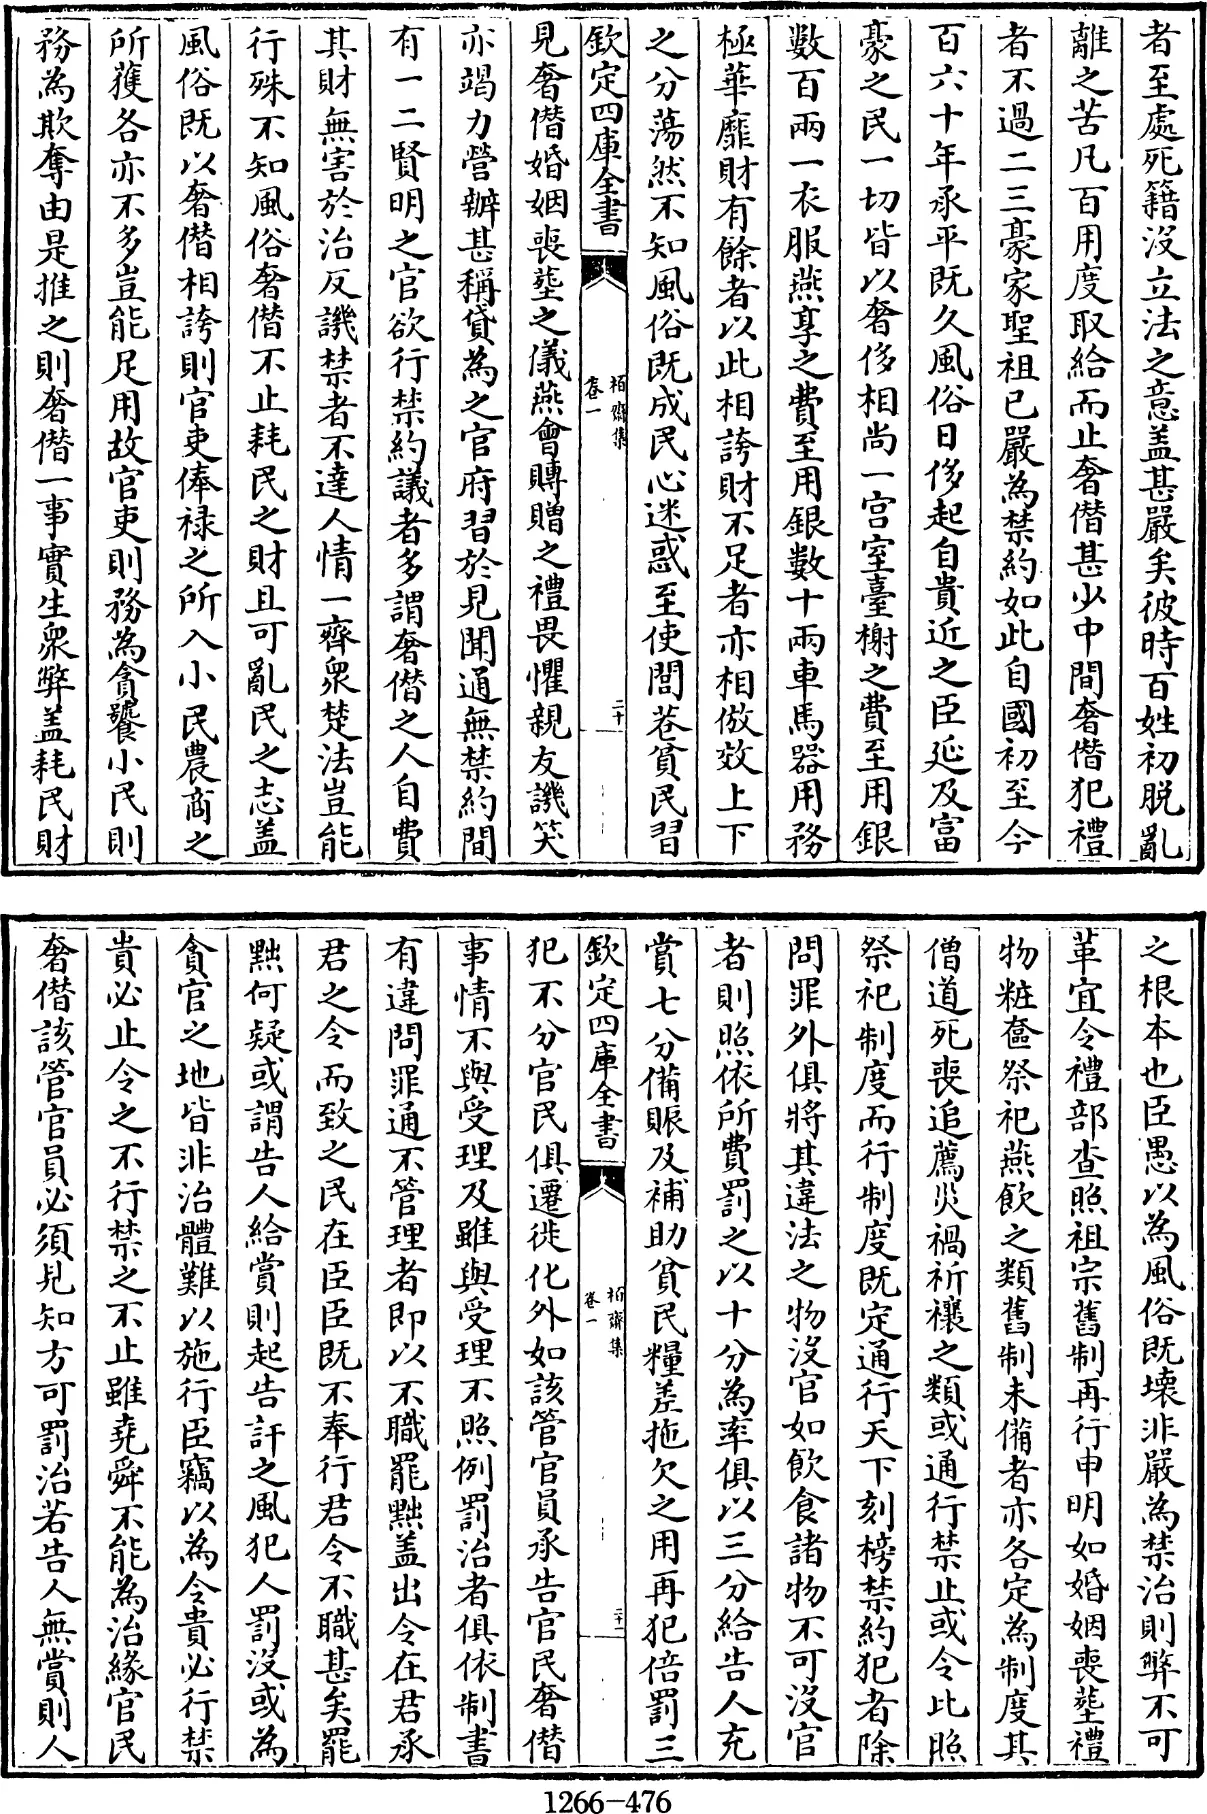 者至處死籍沒立法之意盖甚嚴矣彼時百姓初脱亂
離之苦凡百用度取給而止奢僭甚少中間奢僭犯禮
者不過二三豪家聖祖已嚴為禁約如此自國初至今
百六十年承平既久風俗日侈起自貴近之臣延及富
豪之民一切皆以奢侈相尚一宫室臺榭之費至用銀
數百兩一衣服燕享之費至用銀數十兩車馬器用務
極華靡財有餘者以此相誇財不足者亦相倣效上下
之分蕩然不知風俗既成民心迷惑至使閭巷貧民習
欽定四庫全書
栢齋集
卷一
二十
見奢僭婚姻喪塟之儀燕會賻贈之禮畏懼親友譏笑
亦竭力營辦甚稱貸為之官府習於見聞通無禁約間
有一二賢明之官欲行禁約議者多謂奢僭之人自費
其財無害於治反譏禁者不達人情一齊衆楚法豈能
行殊不知風俗奢僭不止耗民之財且可亂民之志盖
風俗既以奢僭相誇則官吏俸禄之所入小民農商之
所獲各亦不多豈能足用故官吏則務為貪饕小民則
務為欺奪由是推之則奢僭一事實生衆弊盖耗民財
之根本也臣愚以為風俗既壊非嚴為禁治則弊不可
革宜令禮部查照祖宗舊制再行申明如婚姻喪塟禮
物粧奩祭祀燕飲之類舊制未備者亦各定為制度其
僧道死喪追薦災禍祈禳之類或通行禁止或令比照
祭祀制度而行制度既定通行天下刻榜禁約犯者除
問罪外俱將其違法之物沒官如飲食諸物不可沒官
者則照依所費罰之以十分為率俱以三分給告人充
賞七分備賑及補助貧民糧差拖欠之用再犯倍罰三
欽定四庫全書
栢齋集
卷一
二十一
犯不分官民俱遷徙化外如該管官員承告官民奢僭
事情不與受理及雖與受理不照例罰治者俱依制書
有違問罪通不管理者即以不職罷黜盖出令在君承
君之令而致之民在臣臣既不奉行君令不職甚矣罷
黜何疑或謂告人給賞則起告訐之風犯人罰沒或為
貪官之地皆非治體難以施行臣竊以為令貴必行禁
貴必止令之不行禁之不止雖堯舜不能為治緣官民
奢僭該管官員必須見知方可罰治若告人無賞則人
1266-476